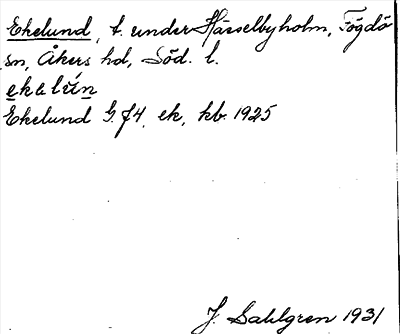 Ekelund, t. under Hässelbyholm, Fogdö
sn, Åkers hd, Söd. l.
ekalún
Ekelund G. J4, ek, kb. 1925
J. Sahlgren 1931